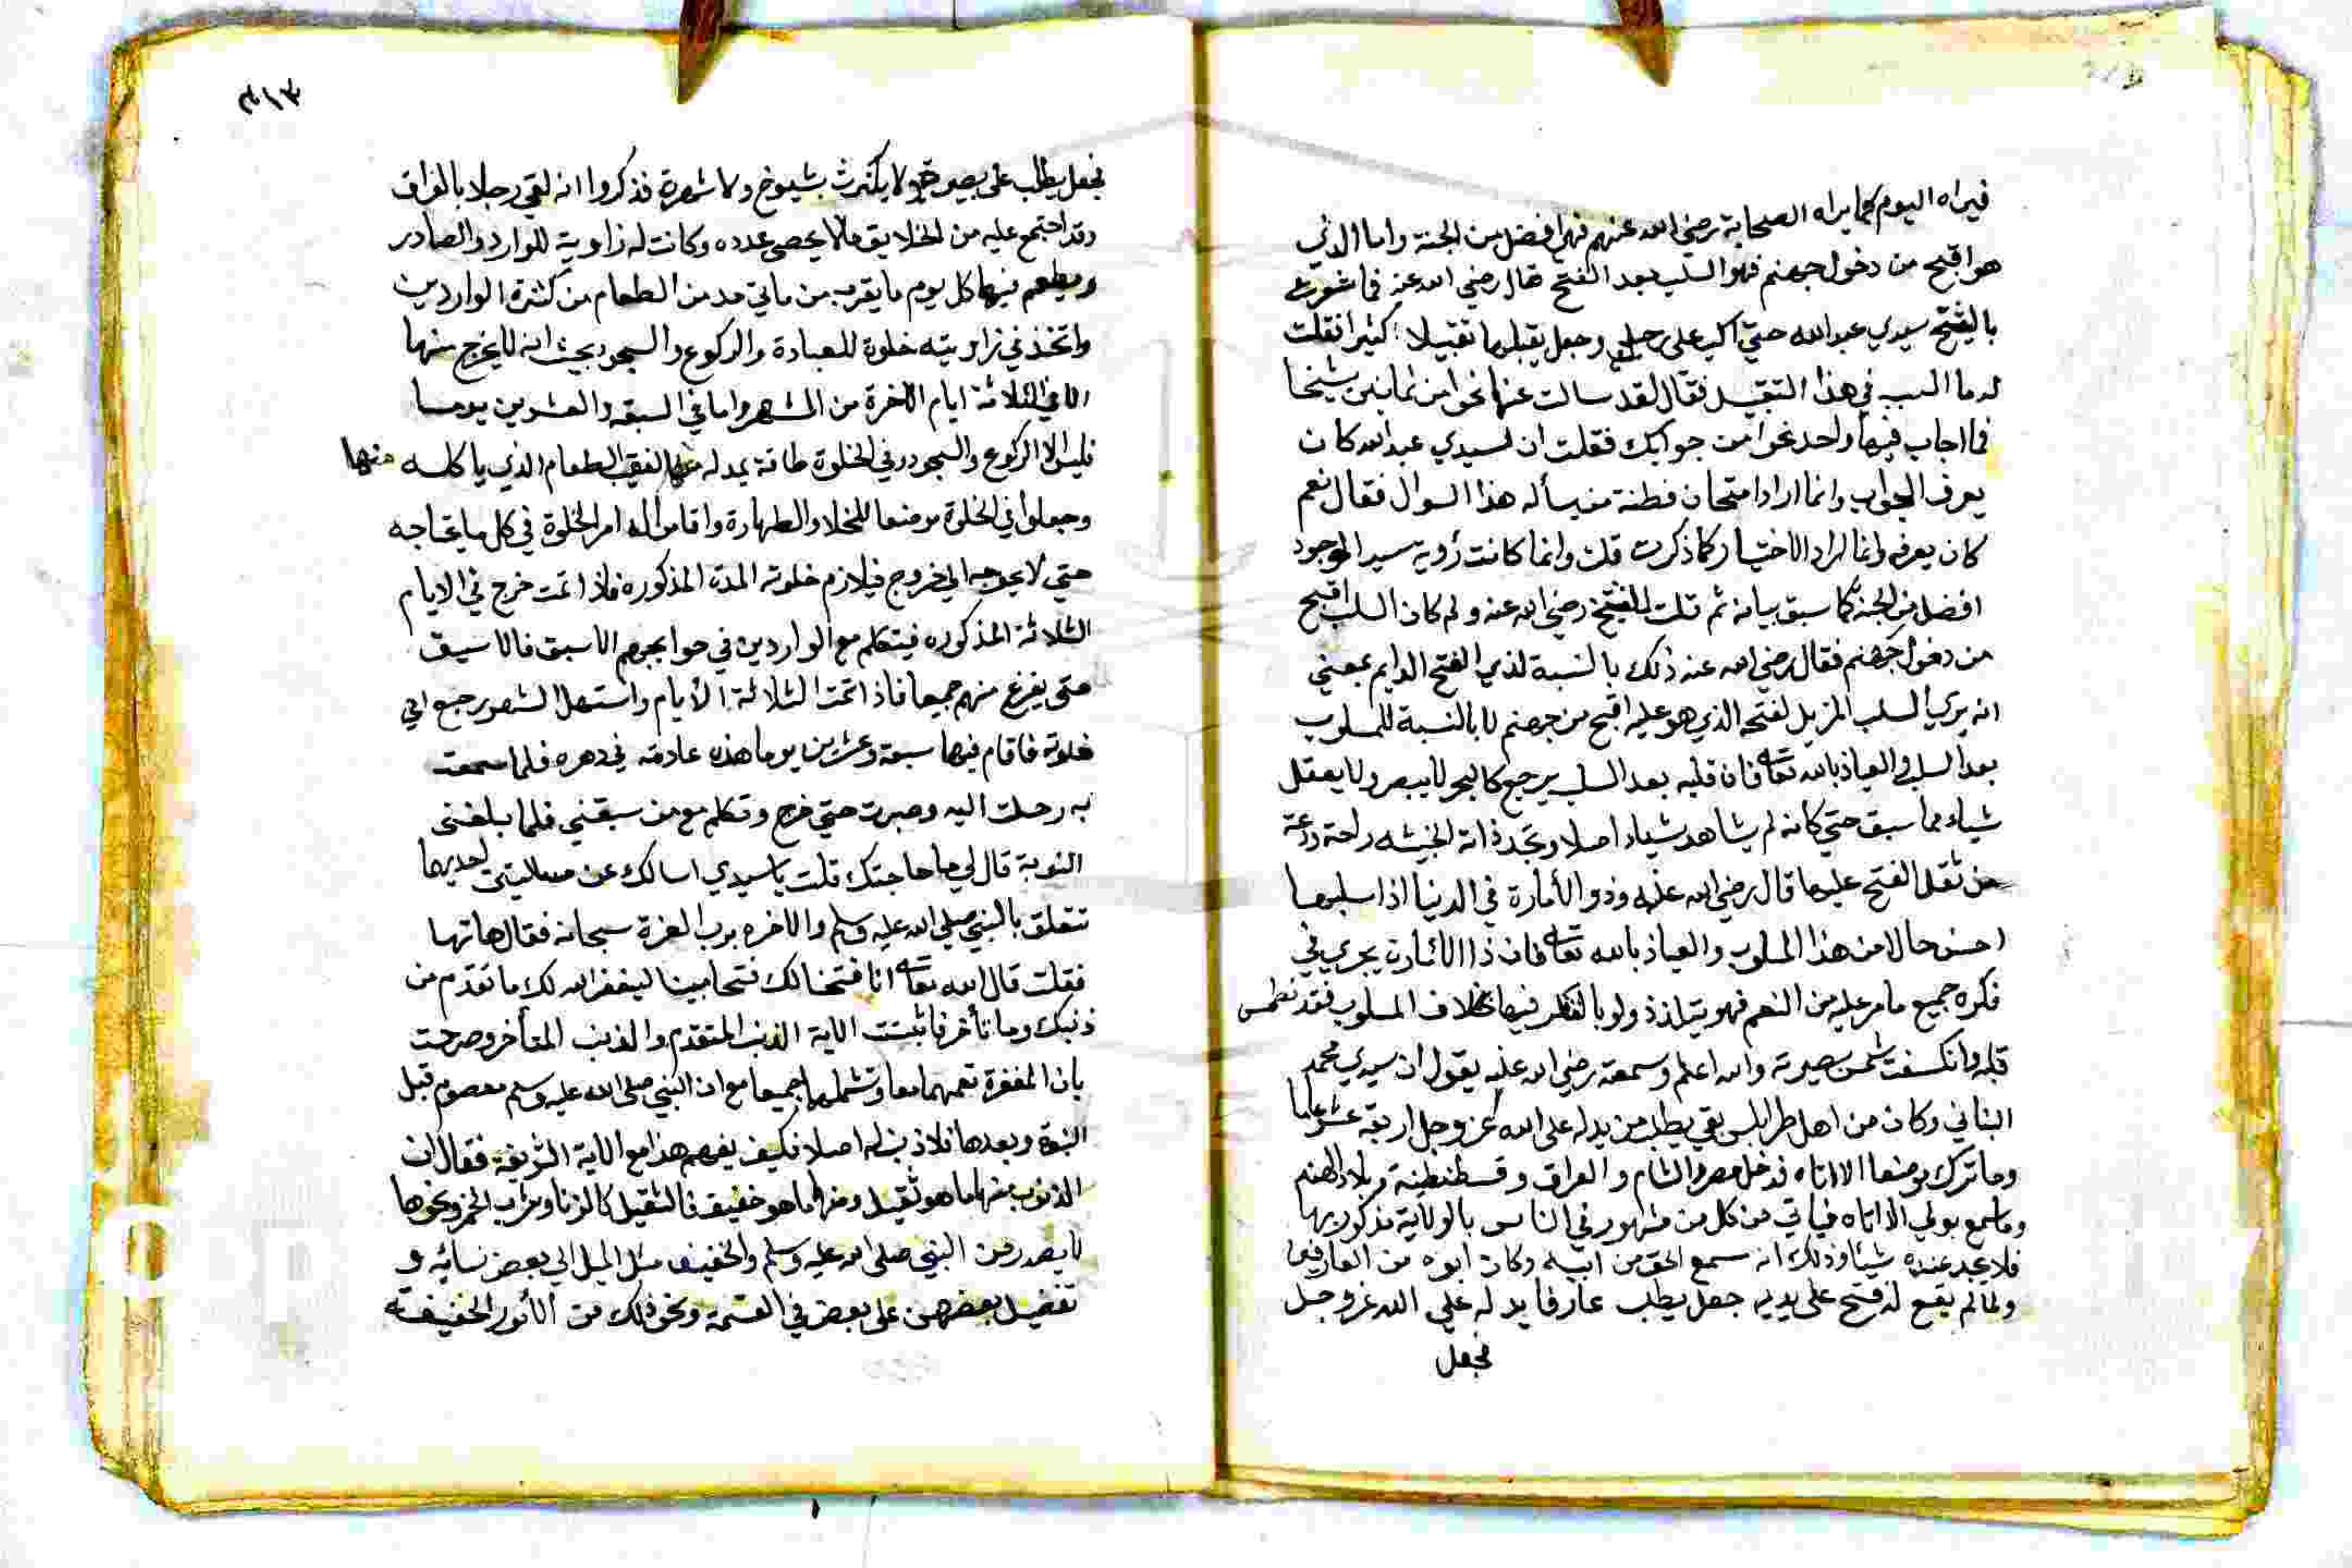 فيراه اليوم كما يراه الصحابة رضي الله عنهم فهي افضل من الجنة واما الذي
هو اقبح من دخول جهنم فهو السلب بعد الفتح قال رضي الله عنه فما شعرت
بالشيخ سيدي عبد الله حتي اكب علي رجلي وجعل يقبلها تقبيلا كثيرا فقلت
له ما السبب في هذا التقبيل فقال لقد سالت عنها نحوا من ثمانين شيخا
فما اجاب فيها واحد نحوا من جوابك فقلت ان لسيدي عبد الله كان
يعرف الجواب وانما اراد امتحان فطنة من يسأله هذا السوال فقال نعم
كان يعرفه وانما اراد الاختبار كما ذكرت قلت وانما كانت رؤية سيد الوجود
افضل من الجنة كما سبق بيانه ثم قلت للشيخ رضي الله عنه ولم كان السلب اقبح
من دخول جهنم فقال رضي الله عنه ذلك بالنسبة لذي الفتح الدايم بمعني
انه يري السلب المزيل لفتحه الذي هو عليه اقبح من جهنم لا بالنسبة للمسلوب
بعد السلب والعياذ بالله تعالي فان قلبه بعد السلب يرجع كالحجر لا يبصر ولا يعقل
شياء مما سبق حتي كانه لم يشاهد شياء اصلا وتجد ذاته الخبيثه راحة ودعة
من ثقل الفتح عليها قال رضي الله عنه وذو الأمارة في الدنيا اذا سلبها
احسن حالا من هذا المسلوب والعياذ بالله تعالي فان ذا الامارة يجري في
فكره جميع ما مر عليه من النعم فهو يتلذذ ولو بالفكر فيها بخلاف المسلوب فقد نطمس
قلبه وانكسفت شمس بصيرته والله اعلم وسمعته رضي الله عنه يقول ان سيدي محمد
البناني وكان من اهل طرابلس بقي يطلب من يدله علي الله عز وجل اربعة عشر عاما
وما ترك موضعا الا اتاه فدخل مصر والشام والعراق وقسطنطينة وبلاد الهند
وما سمع بولي الا اتاه فياتي من كل من مشهور في الناس بالولاية مذكور بها
فلا يجد عنده شيئا وذلك انه سمع الحق من ابيه وكان ابوه من العارفين
ولما لم يقع له فتح علي يديه جعل يطلب عارفا يدله علي الله عز وجل
فجعل
٣١٣
فجعل يطلب علي بصيرة ولا يكترث بشيوخ ولا شهرة فذكروا انه لقي رجلا بالعراق
وقد اجتمع عليه من الخلايق ما لا يحصي عدده وكانت له زاوية للوارد والصادر
ويطعم فيها كل يوم ما يقرب من ماتي مد من الطعام من كثرة الواردين
واتخذ في زاويته خلوة للعبادة والركوع والسجود بحيث انه لا يخرج منها
الا في الثلاثة ايام الاخرة من الشهر واما في السبعة والعشرين يوما
فليس الا الركوع والسجود وفي الخلوة طاقة يمد له منها النقيب الطعام الذي ياكله منها
وجعلوا في الخلوة موضعا للخلاء والطهارة واقاموا له امر الخلوة في كل ما يحتاجه
حتي لا يحوجه الي خروج فيلازم خلوته المدة المذكورة فاذا تمت خرج في الايام
الثلاثة المذكوره فيتكلم مع الواردين في حوايجهم الاسبق فالاسبق
حتي يفرغ منهم جميعا فاذا تمت الثلاثة الأيام واستهل الشهر رجع الي
خلوته فاقام فيها سبعة وعشرين يوما هذه عادته في دهره فلما سمعت
به رحلت اليه وصبرت حتي خرج وتكلم مع من سبقني فلما بلغتني
النوبة قال لي ما حاجتك قلت يا سيدي اسالك عن مسالتين احديها
تتعلق بالنبي صلي الله عليه وسلم والاخره برب العزة سبحانه فقال هاتها
فقلت قال الله تعالي انا فتحنا لك فتحا مبينا ليغفر الله لك ما تقدم من
ذنبك وما تأخر فاثبتت الاية الذنب المتقدم والذنب المتأخر وصرحت
بان المغفرة تعمهما معا وتشملهما جميعا مع ان النبي صلي الله عليه وسلم معصوم قبل
النبوة وبعدها فلا ذنب له اصلا فكيف يفهم هذا مع الاية الشريفة فقال ان
الذنوب منها ما هو ثقيل ومنها ما هو خفيف فالثقيل كالزنا وشرب الخمر ونحوها
لا يصدر من النبي صلي الله عليه وسلم والخفيف مثل الميل الي بعض نسائه و
تفضيل بعضهن علي بعض في القسمة ونحو ذلك من الأمور الخفيفة